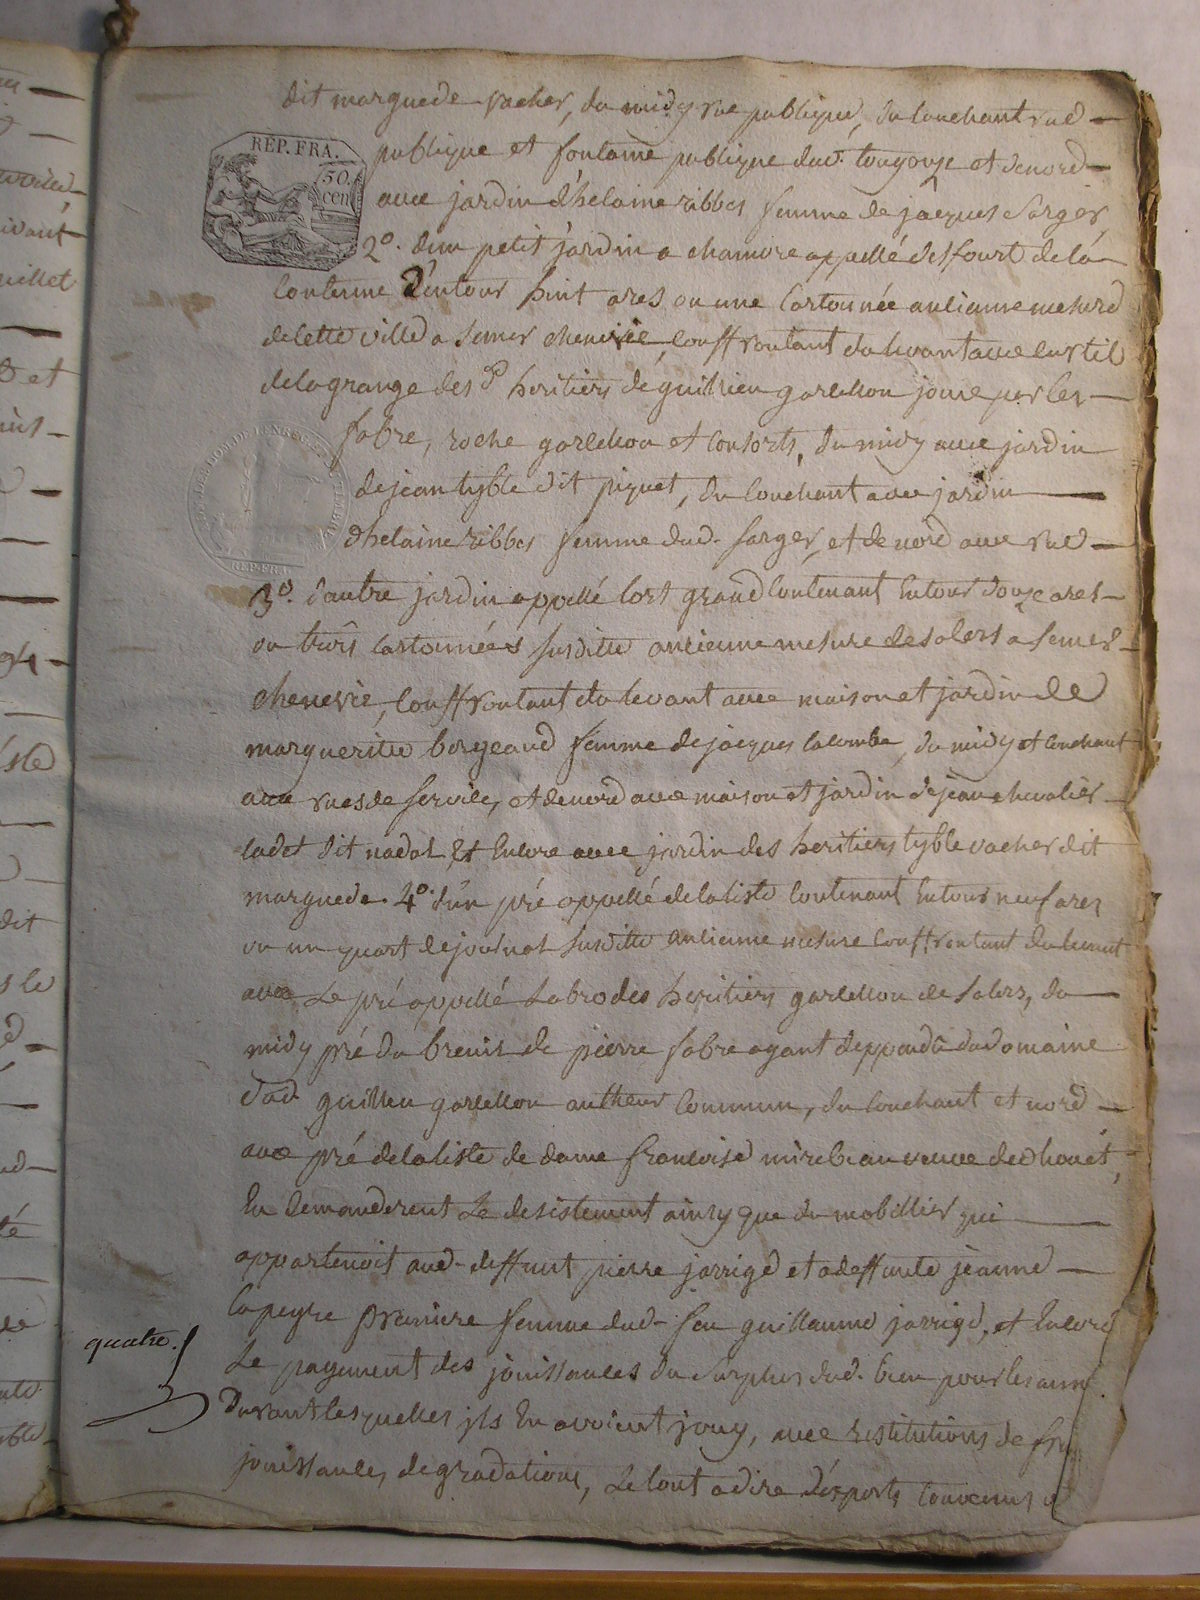 dit marguede vacher, du midy rue publique, du couchant rue
REP. FRA.
50.
cen
publique et fontaine publique dud. tougouze et de nord
avec jardin d'helaine ribbes femme de jacques sarger
2º. d'un petit jardin a chanvre appellé delfourt de la
contenue d'entour huit ares ou une cartonnée ancienne mesure
de cette ville a semer chenevie, conffrontant du levant avec curtil
de la grange des d. heritiers de guillieu garlellou jouie par les
fabre, roche garlellou et consorts, du midy avec jardin
de jean tyble dit piquet, du couchant avec jardin
d'helaine ribbes femme dud. sarger, et de nord avec rue
REP. FRA.
3º. d'autre jardin appellé lort grand contenant entour douze ares
ou trois cartonnées susditte ancienne mesure de salers a semer
chenevie, conffrontant du levant avec maison et jardin de
margueritte borgeaud femme de jacques lacombe, du midy et couchant
avec rues de servile, et de nord avec maison et jardin de jean chevalier
cadet dit nadal et encore avec jardin des heritiers tyble vacher dit
marguede. 4º. d'un pré appellé de laliste contenant entour neuf ares
ou un quart de journal susditte ancienne mesure conffrontant du levant
avec le pré appellé labro des heritiers garlellou de salers, du
midy pré du breuil de pierre fabre ayant deppendu du domaine
dud. guillieu garlellou autheur commun, du couchant et nord
avec pré de laliste de dame francoise mirebeau veuve de
en demanderent le desistement ainsy que du mobillier qui
appartenoit aud. deffunt pierre jarrige et a deffunte jeanne
lapeyre premiere femme dud. feu guillaume jarrige, et encore
quatre.
le payement des jouissances du surplus dud. bien pour les ann
durant lesquelles ils en avoient jouy, avec restitutions de
jouissances, degradations, le tout a dire d'experts convenus